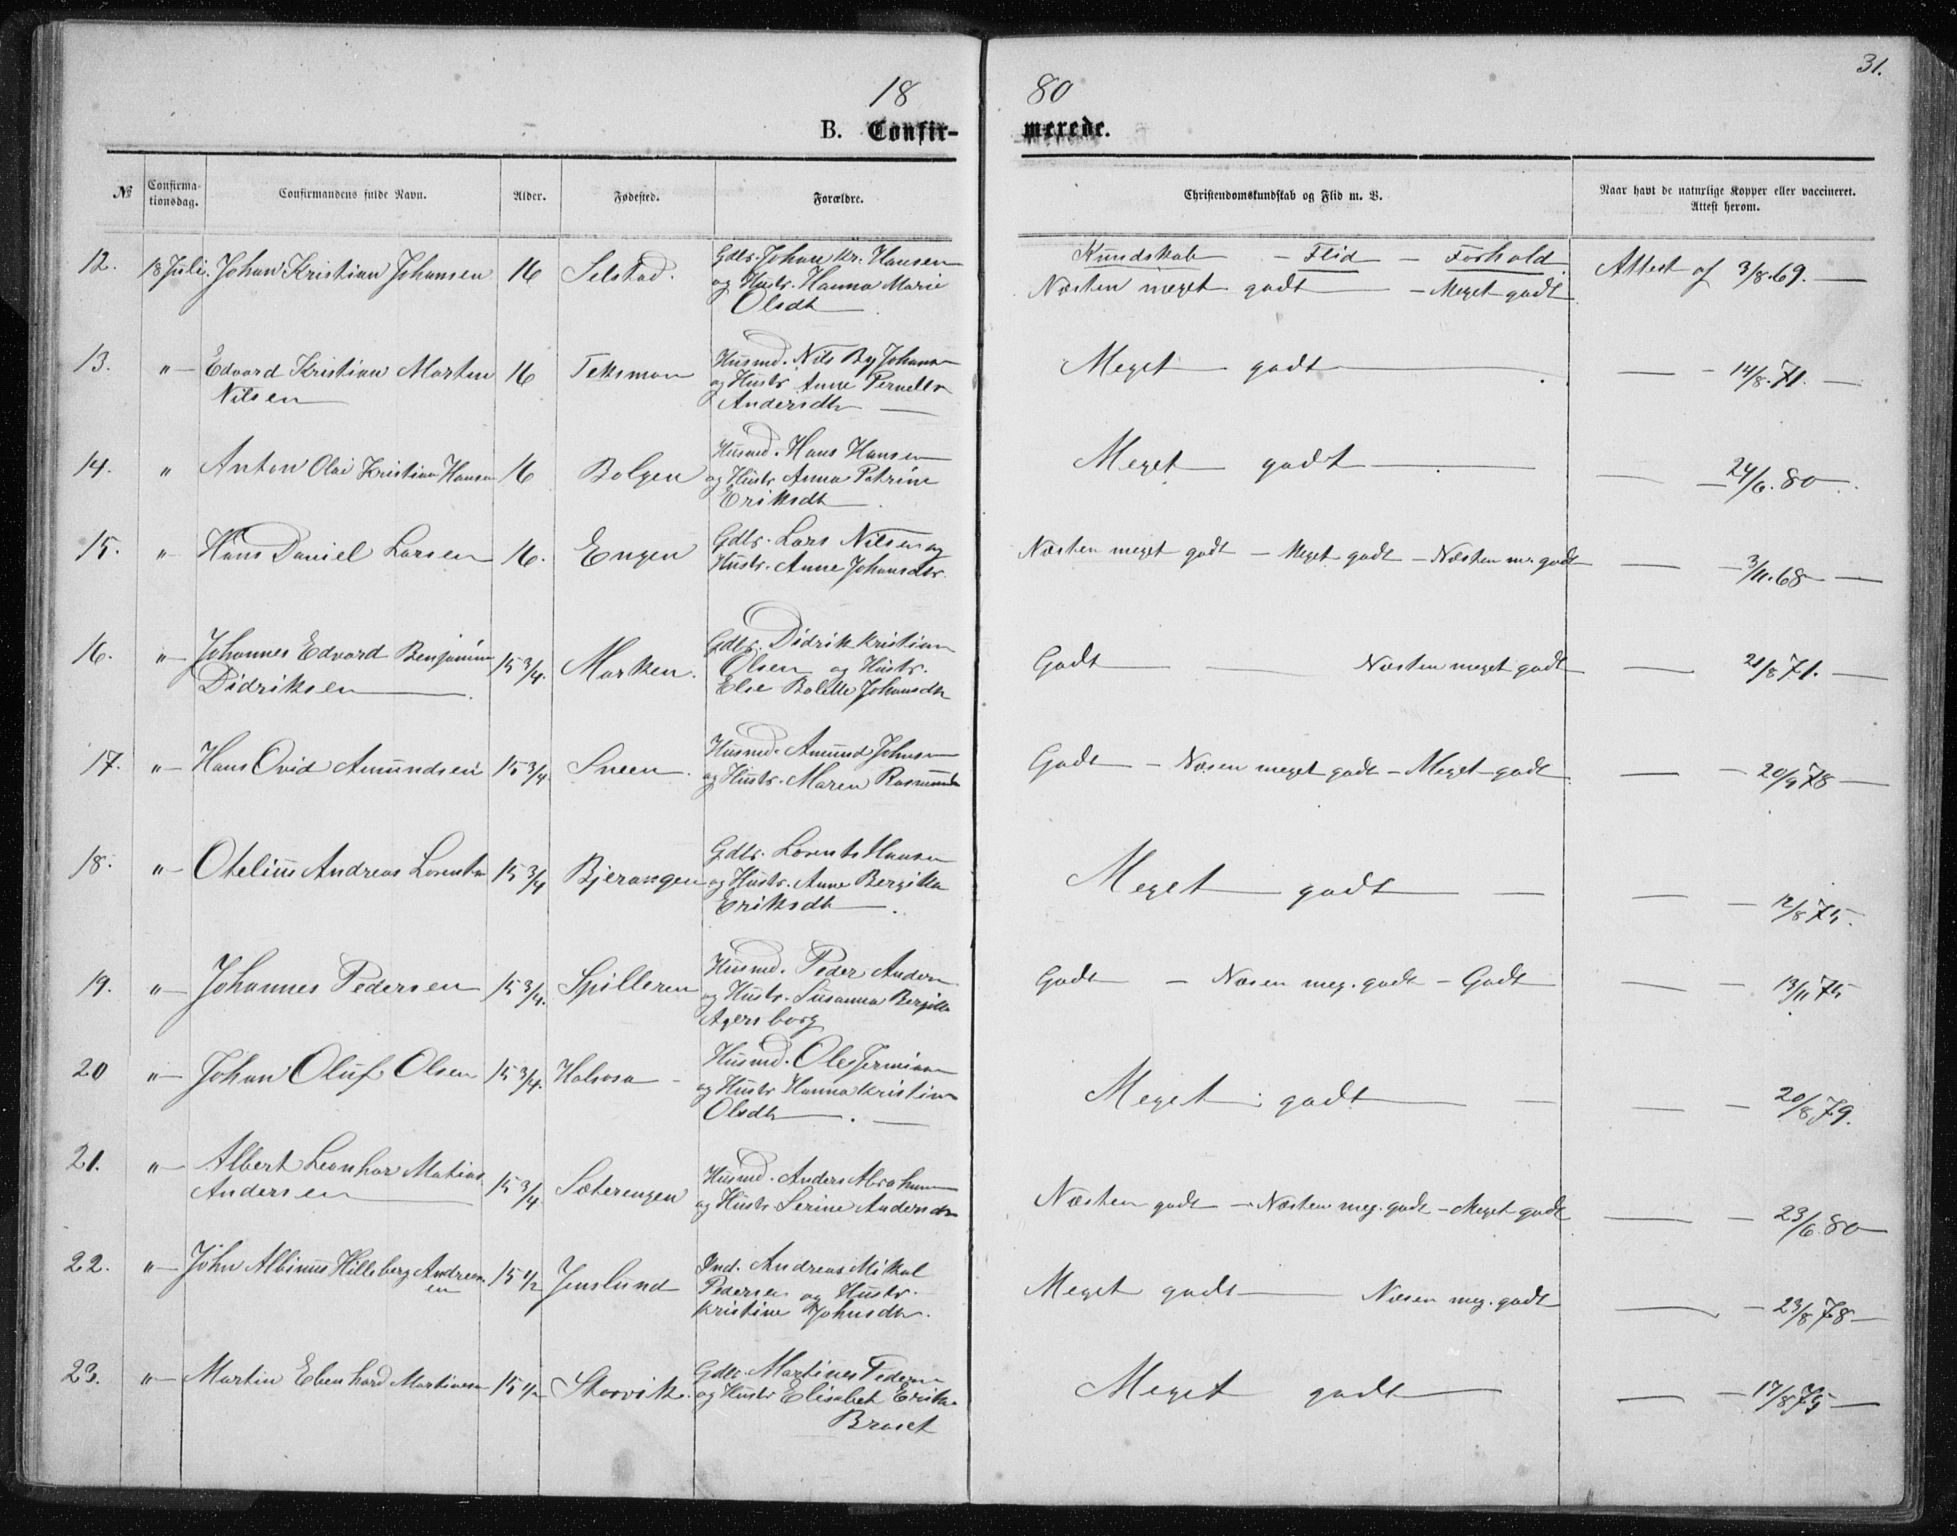 31.
18 80
B. Confir- merede.
№ Confirma-tionsdag. Confirmandens fulde Navn. Alder. Fødested. Forældre. Christendomskundskab og Flid m. V. Naar havt de naturlige Kopper eller vaccineret. Attest herom.
12. 18 Juli. Johan Kristian Johansen 16 Selstad. Gdbr. Johan Kr. Hansen
og Hustr. Hanna Marie
Olsdtr.
Kundskab - Flid - Forhold.
Næsten meget godt - Meget godt
Attest af 3/8.69. —
13. "— Edvard Kristian Martin 16 Teksmon Husmd. Nils By Johans
Nilsen — og Hustr Anne Pernelle
Andersdtr —
Meget godt —
— - 14/8.71. —
14. " Anton Olai Kristian Hansen 16 Bolgen Husmd. Hans Hansen
og Hustr Anna Petrine
Eriksdtr.
Meget godt —
— 24/6.80 —
15. "- Hans Daniel Larsen 16. Engen Gdbr. Lars Nilsen og
Hustr. Anne Johansdtr.
Næsten meget godt - Meget godt - Næsten m. godt
— - 3/11.68 —
16. "— Johannes Edvard Benjamin 15 3/4. Marken. Gdbr. Didrik Kristian
Didriksen —. Olsen og Hustr.
Else Bolette Johansdtr
Godt — — Næsten meget godt
— 21/8 71. —
17. "— Hans Ovid Amundsen 15 3/4 Sneen. Husmd. Amund Johnsen
og Hustr. Maren Rasmusdtr
Godt - Næsen meget godt - Meget godt
— - 20/9 78 —
18. "- Otelius Andreas Lorentsen 15 3/4 Bjerangen Gdbr. Lorents Hansen
og Hustr. Anne Bergitta
Eriksdtr —.
Meget godt — —
— - 12/8 75.
19. "— Johannes Pedersen 15 3/4. Spilleren Husmd. Peder Andersen
og Hustr. Susanna Bergitte
Agersborg
Godt — Næsen meg. godt - Godt
— - 13/11 75
20 "— Johan Oluf Olsen 15 3/4. Halsosa - Husmd. Ole
og Hustr Hanna Kristine
Olsdtr —. —
Meget godt — —
— - 20/8 79.
21. "— Albert Leonhar Matias 15 3/4. Sæterengen Husmd. Anders Abraham
Andersen — og Hustr Serine Andersdtr
Næsten godt - Næsten meg. godt - Meget godt
— - 23/6 80 —
22. "— John Albinus Hilleberg Andreas- 15 1/2 Jenslund Ind. Andreas Mikal
en Pedersen og Hustr.
Kristine Johnsdtr.
Meget godt — Næsen meg. godt
— - 23/8 78 —
23. "— Martin Ebenhard Martinsen 15 1/2 Storvik. Gdbr. Martines Pedersen
og Hustr Elisabet Erika
Braset
Meget godt —
— - 17/8 75 —